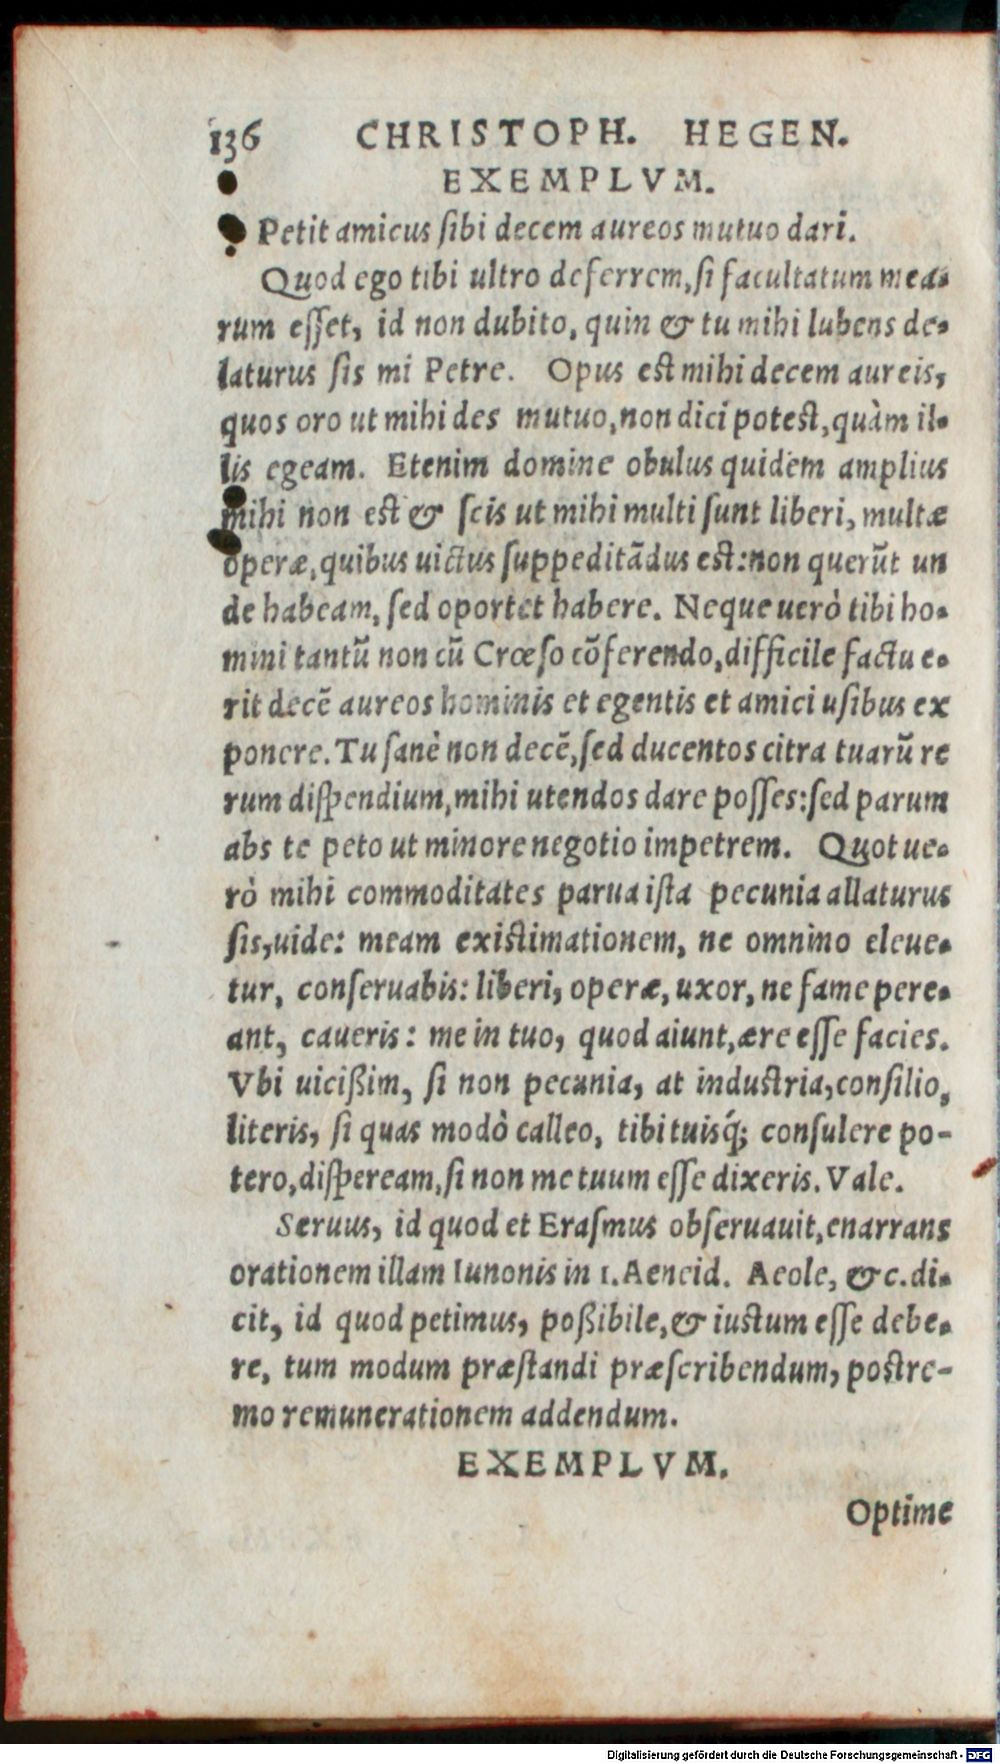 136 CHRISTOPH. HEGEN.
EXEMPLVM.
Petit amicus sibi decem aureos mutuo dari.
Quod ego tibi ultro deferrem, si facultatum mea-
rum esset, id non dubito, quin & tu mihi lubens de-
laturus sis mi Petre. Opus est mihi decem aureis,
quos oro ut mihi des mutuo, non dici potest, quàm il-
lis egeam. Etenim domine obulus quidem amplius
mihi non est & scis ut mihi multi sunt liberi, multæ
operæ, quibus uictus suppeditãdus est: non querũt un
de habeam, sed oportet habere. Neque uerò tibi ho-
mini tantũ non cũ Crœso cõferendo, difficile factu e-
rit decẽ aureos hominis et egentis et amici usibus ex
ponere. Tu sanè non decẽ, sed ducentos citra tuarũ re
rum dispendium, mihi utendos dare posses: sed parum
abs te peto ut minore negotio impetrem. Quot ue-
rò mihi commoditates parua ista pecunia allaturus
sis, uide: meam existimationem, ne omnino eleue-
tur, conseruabis: liberi, operæ, uxor, ne fame pere-
ant, caueris: me in tuo, quod aiunt, ære esse facies.
Vbi uicißim, si non pecunia, at industria, consilio,
literis, si quas modò calleo, tibi tuisq́; consulere po-
tero, dispeream, si non me tuum esse dixeris. Vale.
Seruus, id quod et Erasmus obseruauit, enarrans
orationem illam Iunonis in 1. Aeneid. Aeole, &c. di-
cit, id quod petimus, poßibile, & iustum esse debe-
re, tum modum præstandi præscribendum, postre-
mo remunerationem addendum.
EXEMPLVM.
Optime
Digitalisierung gefördert durch die Deutsche Forschungsgemeinschaft - DFG